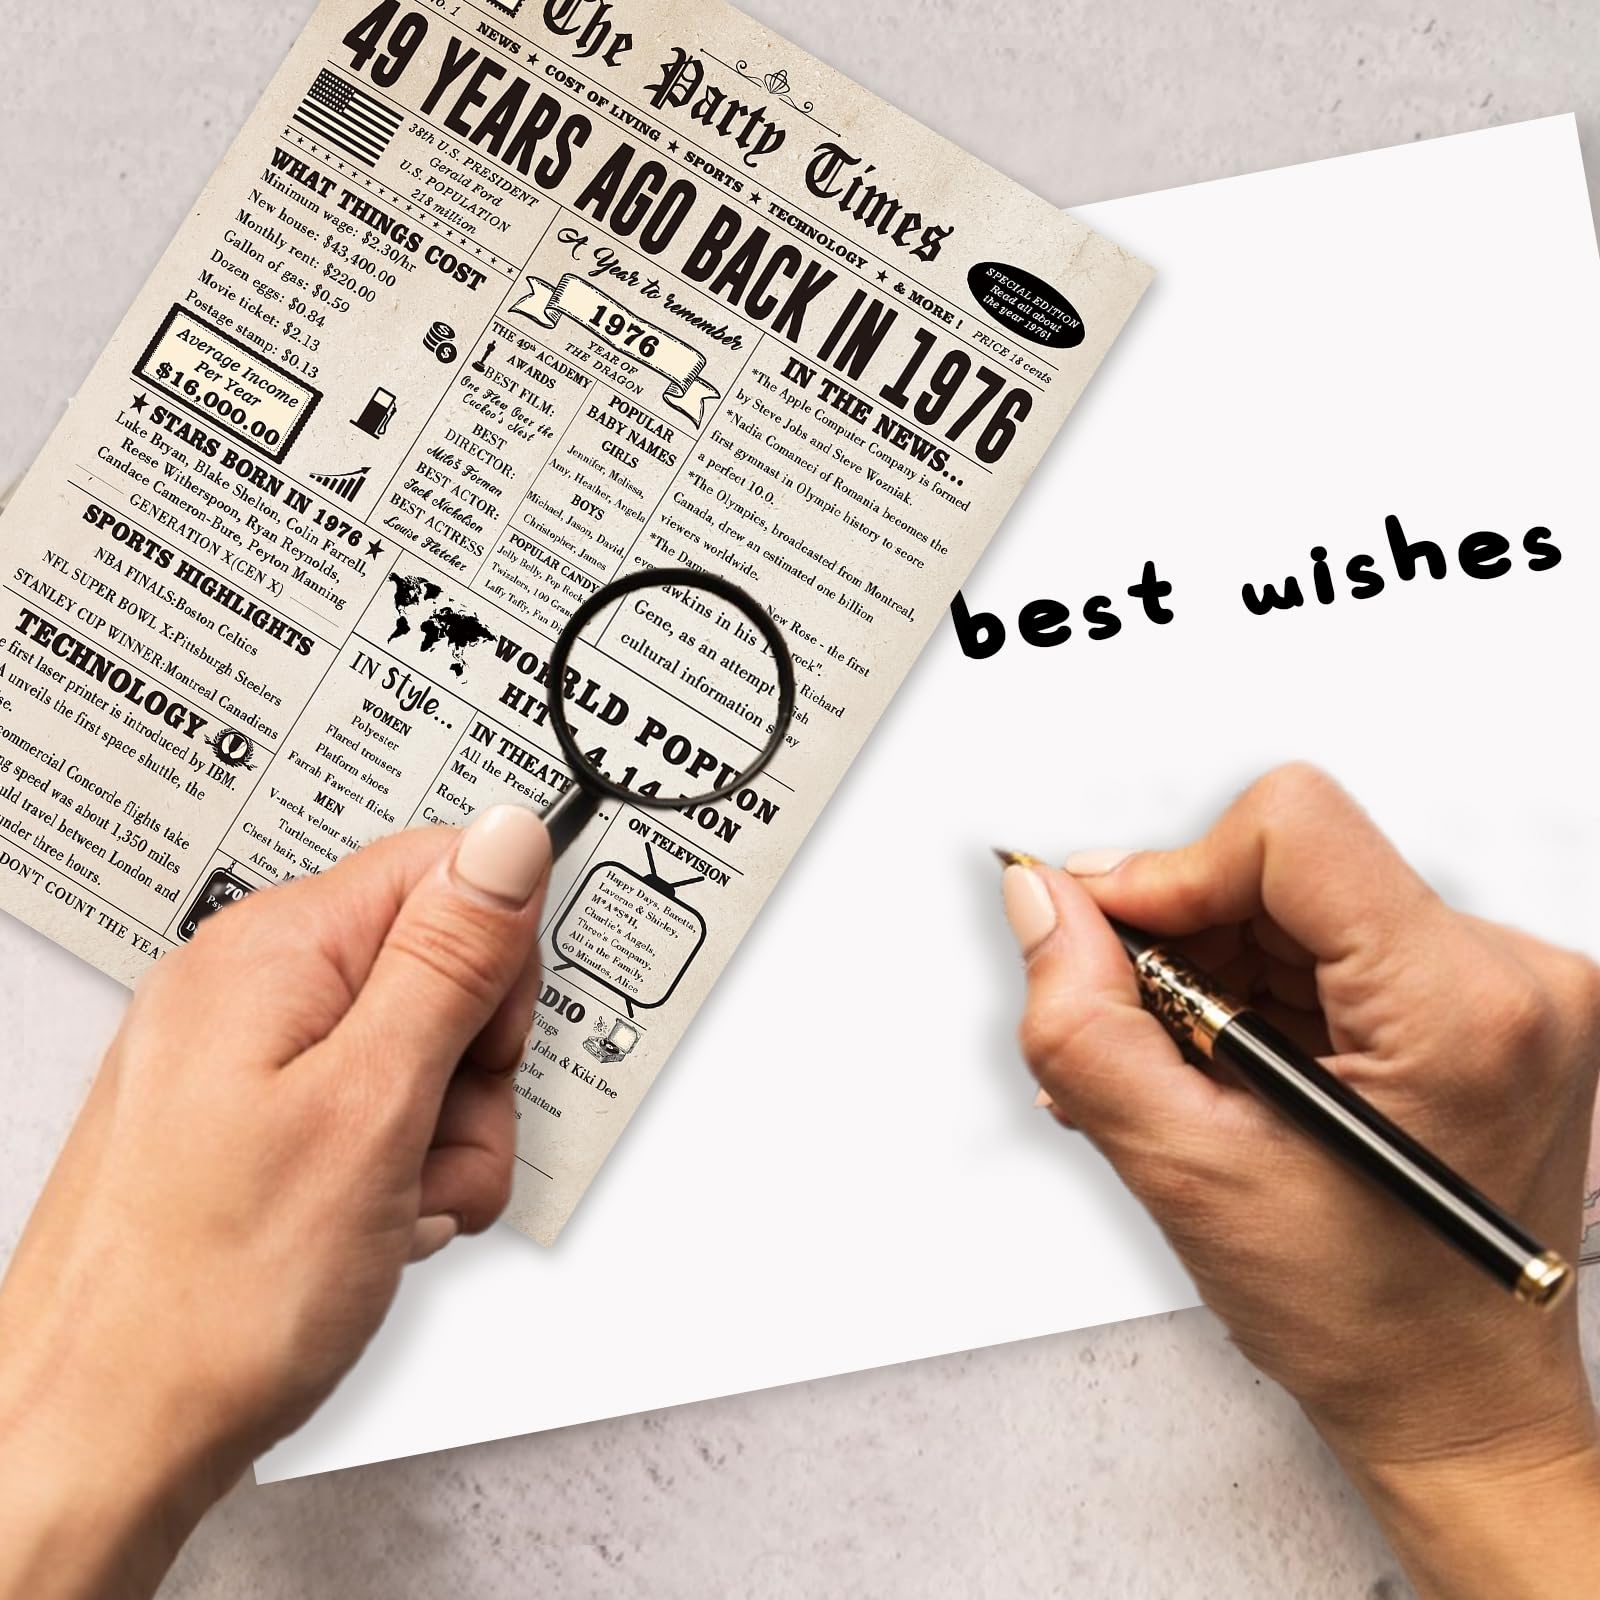 No. 1
The Party Times
NEWS ★ COST OF LIVING ★ SPORTS ★ TECHNOLOGY ★ & MORE!
PRICE 18 cents
49 YEARS AGO BACK IN 1976
SPECIAL EDITION
Read all about
the year 1976!
38th U.S. PRESIDENT
Gerald Ford
U.S. POPULATION
218 million
WHAT THINGS COST
Minimum wage: $2.30/hr
New house: $43,400.00
Monthly rent: $220.00
Gallon of gas: $0.59
Dozen eggs: $0.84
Movie ticket: $2.13
Postage stamp: $0.13
Average Income
Per Year
$16,000.00
★ STARS BORN IN 1976 ★
Luke Bryan, Blake Shelton, Colin Farrell,
Reese Witherspoon, Ryan Reynolds,
Candace Cameron-Bure, Peyton Manning
GENERATION X(CEN X)
SPORTS HIGHLIGHTS
NBA FINALS:Boston Celtics
NFL SUPER BOWL X:Pittsburgh Steelers
STANLEY CUP WINNER:Montreal Canadiens
TECHNOLOGY
first laser printer is introduced by IBM.
unveils the first space shuttle, the
commercial Concorde flights take
speed was about 1,350 miles
travel between London and
under three hours.
DON'T COUNT THE
A Year to remember
1976
YEAR OF
THE DRAGON
THE 49th ACADEMY
AWARDS
BEST FILM:
One Flew Over the
Cuckoo's Nest
BEST
DIRECTOR:
Miloš Forman
BEST ACTOR:
Jack Nicholson
BEST ACTRESS
Louise Fletcher
POPULAR
BABY NAMES
GIRLS
Jennifer, Melissa,
Amy, Heather, Angela
BOYS
Michael, Jason, David,
Christopher, James
POPULAR CANDY
Jelly Belly, Pop Rocks
Twizzlers, 100 Grand
Laffy Taffy, Fun
IN THE NEWS...
*The Apple Computer Company is formed
by Steve Jobs and Steve Wozniak.
*Nadia Comaneci of Romania becomes the
first gymnast in Olympic history to score
a perfect 10.0.
*The Olympics, broadcasted from Montreal,
Canada, drew an estimated one billion
viewers worldwide.
*The New Rose - the first
rock".
Richard
in his
Gene, as an attempt
cultural information
WORLD
HIT 4.14
IN Style...
WOMEN
Polyester
Flared trousers
Platform shoes
Farrah Fawcett flicks
MEN
V-neck velour
Turtlenecks
Chest hair,
Afros,
IN
All the
Men
Rocky
ON TELEVISION
Happy Days, Baretta,
Laverne & Shirley,
M*A*S*H,
Charlie's Angels,
Three's Company,
All in the Family,
60 Minutes, Alice
John & Kiki Dee
best wishes